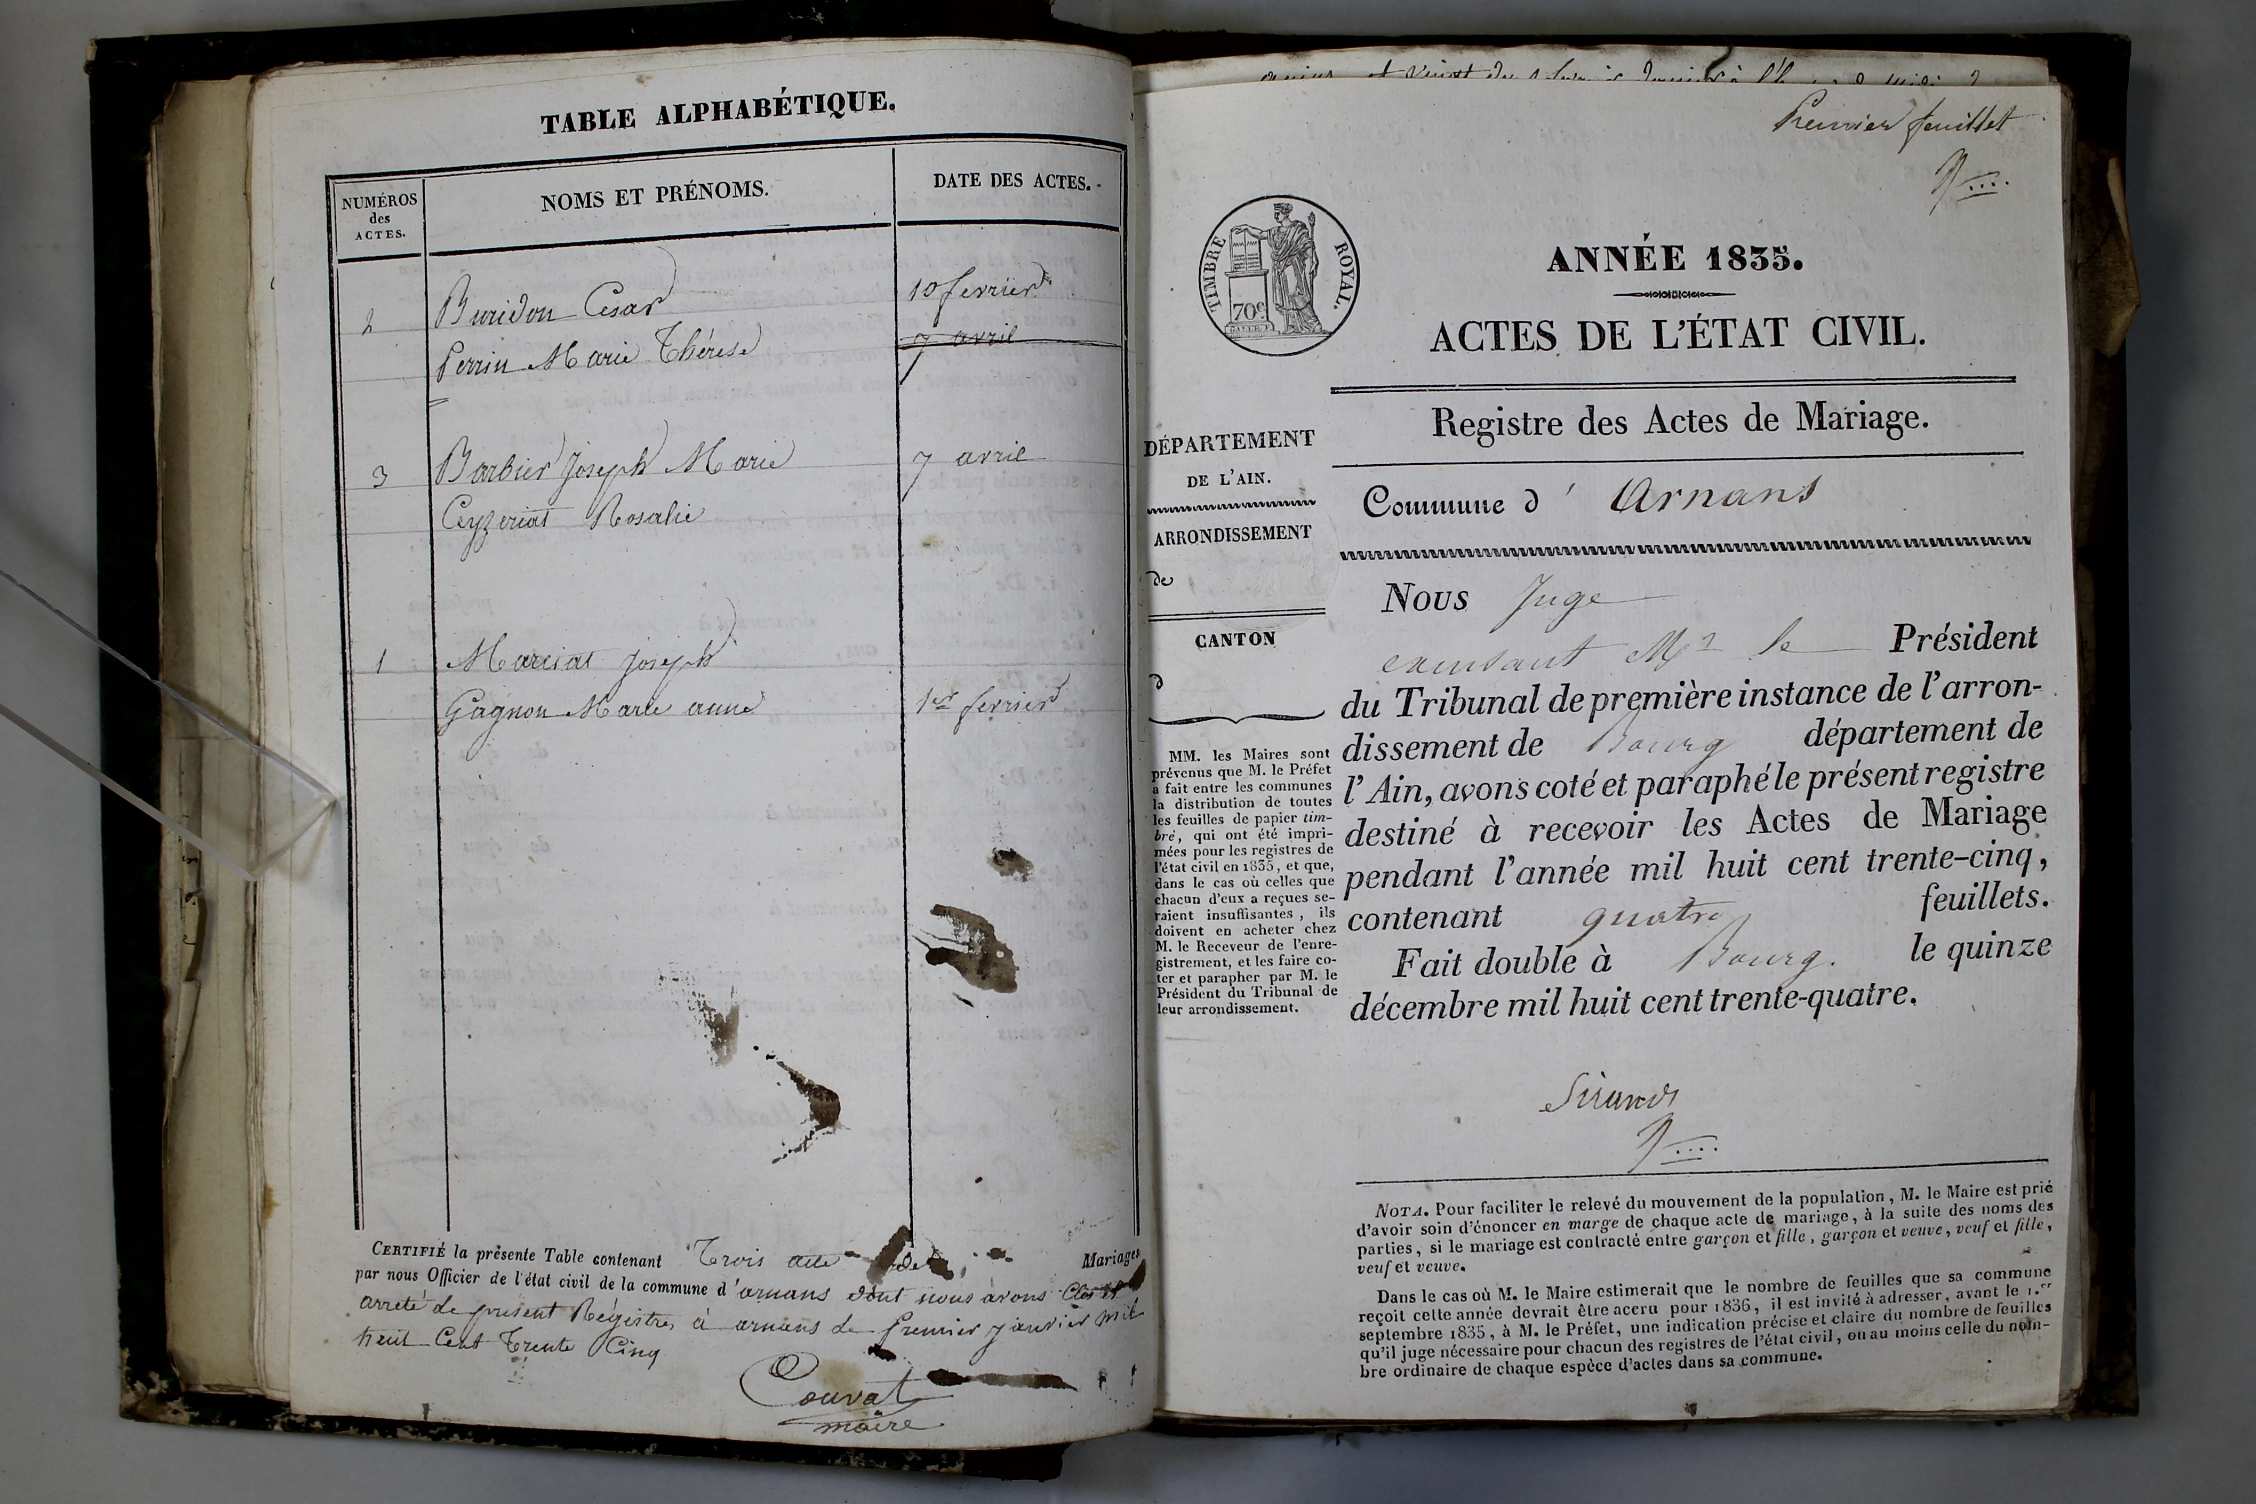 TABLE ALPHABÉTIQUE.
NUMÉROS
des
ACTES.
NOMS ET PRÉNOMS.
DATE DES ACTES.
2 Buridon Cesar 10 fevrier
Perrin Marie Thérese 7 avril
3 Barbier Joseph Marie 7 avril
Ceyzeriat Rosalie
1 Marciat Joseph
Gagnon Marie anne 1er fevrier
CERTIFIÉ la présente Table contenant Trois acte de Mariages
par nous Officier de l'état civil de la commune d'arnans dont nous avons Clos et
arreté de present Régistre, à arnans de premier janvier mil
heuit Cent Trente Cinq
Couvat
maire
Premier feuillet
TIMBRE ROYAL.
70c
ANNÉE 1835.
ACTES DE L'ÉTAT CIVIL.
Registre des Actes de Mariage.
Commune d' Arnans
DÉPARTEMENT
DE L'AIN.
ARRONDISSEMENT
de
CANTON
d
MM. les Maires sont
prévenus que M. le Préfet
a fait entre les communes
la distribution de toutes
les feuilles de papier tim-
bré, qui ont été impri-
mées pour les registres de
l'état civil en 1835, et que,
dans le cas où celles que
chacun d'eux a reçues se-
raient insuffisantes, ils
doivent en acheter chez
M. le Receveur de l'enre-
gistrement, et les faire co-
ter et parapher par M. le
Président du Tribunal de
leur arrondissement.
Nous Juge
excusant Mr le Président
du Tribunal de première instance de l'arron-
dissement de Bourg département de
l'Ain, avons coté et paraphé le présent registre
destiné à recevoir les Actes de Mariage
pendant l'année mil huit cent trente-cinq,
contenant quatre feuillets.
Fait double à Bourg. le quinze
décembre mil huit cent trente-quatre.
Sirand
NOTA. Pour faciliter le relevé du mouvement de la population, M. le Maire est prié
d'avoir soin d'énoncer en marge de chaque acte de mariage, à la suite des noms des
parties, si le mariage est contracté entre garçon et fille, garçon et veuve, veuf et fille,
veuf et veuve.
Dans le cas où M. le Maire estimerait que le nombre de feuilles que sa commune
reçoit cette année devrait être accru pour 1836, il est invité à adresser, avant le 1.er
septembre 1835, à M. le Préfet, une indication précise et claire du nombre de feuilles
qu'il juge nécessaire pour chacun des registres de l'état civil, ou au moins celle du nom-
bre ordinaire de chaque espèce d'actes dans sa commune.